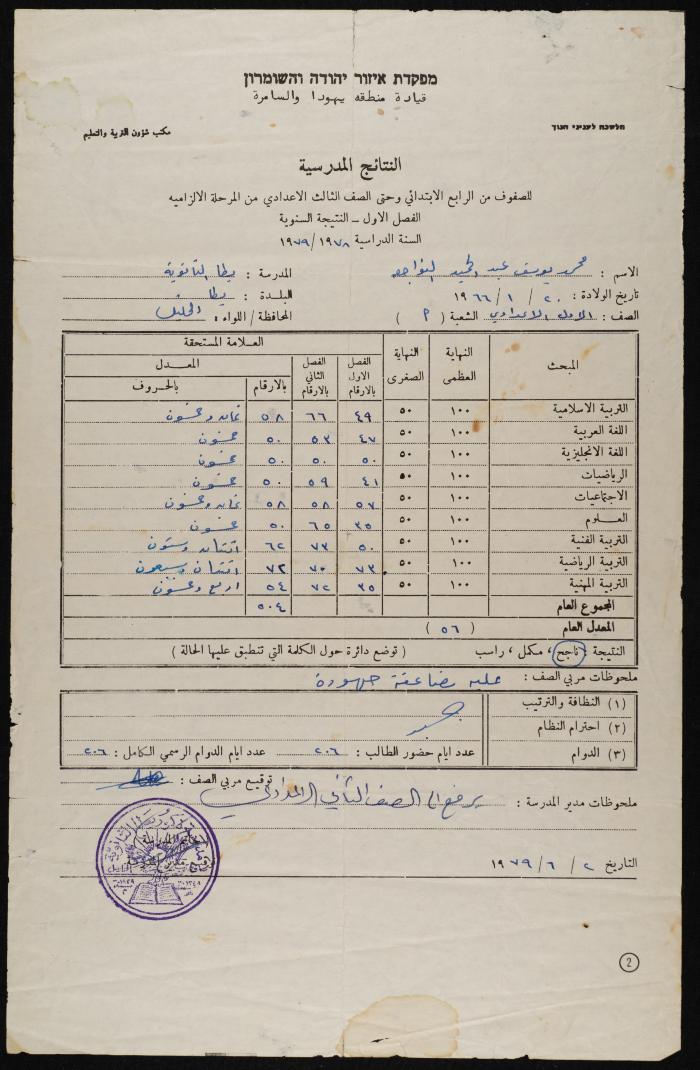 מפקדת איזור יהודה והשומרון
قيادة منطقه يهودا والسامرة
מלשכה לעניני חנוך
مكتب شؤون التربية والتعليم
النتائج المدرسية
للصفوف من الرابع الابتدائي وحتى الصف الثالث الاعدادي من المرحلة الالزاميه
الفصل الاول – النتيجة السنوية
السنة الدراسية ١٩٧٨ / ١٩٧٩
الاسم : محمد يوسف عبد الحميد النواجعه المدرسة : يطا الثانوية
تاريخ الولادة : ٢٠ / ١ / ١٩٦٦ البلدة : يطا
الصف : الاول الاعدادي الشعبة ( م ) المحافظة / اللواء : الخليل
المبحث النهاية العظمى النهاية الصغرى العلامة المستحقة
الفصل الاول بالارقام الفصل الثاني بالارقام المعدل بالارقام بالحروف
التربية الاسلامية ١٠٠ ٥٠ ٤٩ ٦٦ ٥٨ ثمان وخمسون
اللغة العربية ١٠٠ ٥٠ ٤٧ ٥٣ ٥٠ خمسون
اللغة الانجليزية ١٠٠ ٥٠ ٥٠ ٥٠ ٥٠ خمسون
الرياضيات ١٠٠ ٥٠ ٤١ ٥٩ ٥٠ خمسون
الاجتماعيات ١٠٠ ٥٠ ٥٧ ٥٨ ٥٨ ثمان وخمسون
العلوم ١٠٠ ٥٠ ٣٥ ٦٥ ٥٠ خمسون
التربية الفنية ١٠٠ ٥٠ ٥٠ ٧٣ ٦٢ اثنتان وستون
التربية الرياضية ١٠٠ ٥٠ ٧٣ ٧٠ ٧٢ اثنتان وسبعون
التربية المهنية ١٠٠ ٥٠ ٣٥ ٧٢ ٥٤ اربع وخمسون
المجموع العام ٥٠٤
المعدل العام ( ٥٦ )
النتيجة : ناجح ، مكمل ، راسب ( توضع دائرة حول الكلمة التي تنطبق عليها الحالة )
ملحوظات مربي الصف : عليه مضاعفة جهوده
(١) النظافة والترتيب
(٢) احترام النظام جيد
(٣) الدوام عدد ايام حضور الطالب : ٢٠٦ عدد ايام الدوام الرسمي الكامل : ٢٠٦
توقيع مربي الصف :
ملحوظات مدير المدرسة : يرفع الى الصف الثاني الاعدادي
التاريخ ٢ / ٦ / ١٩٧٩
2